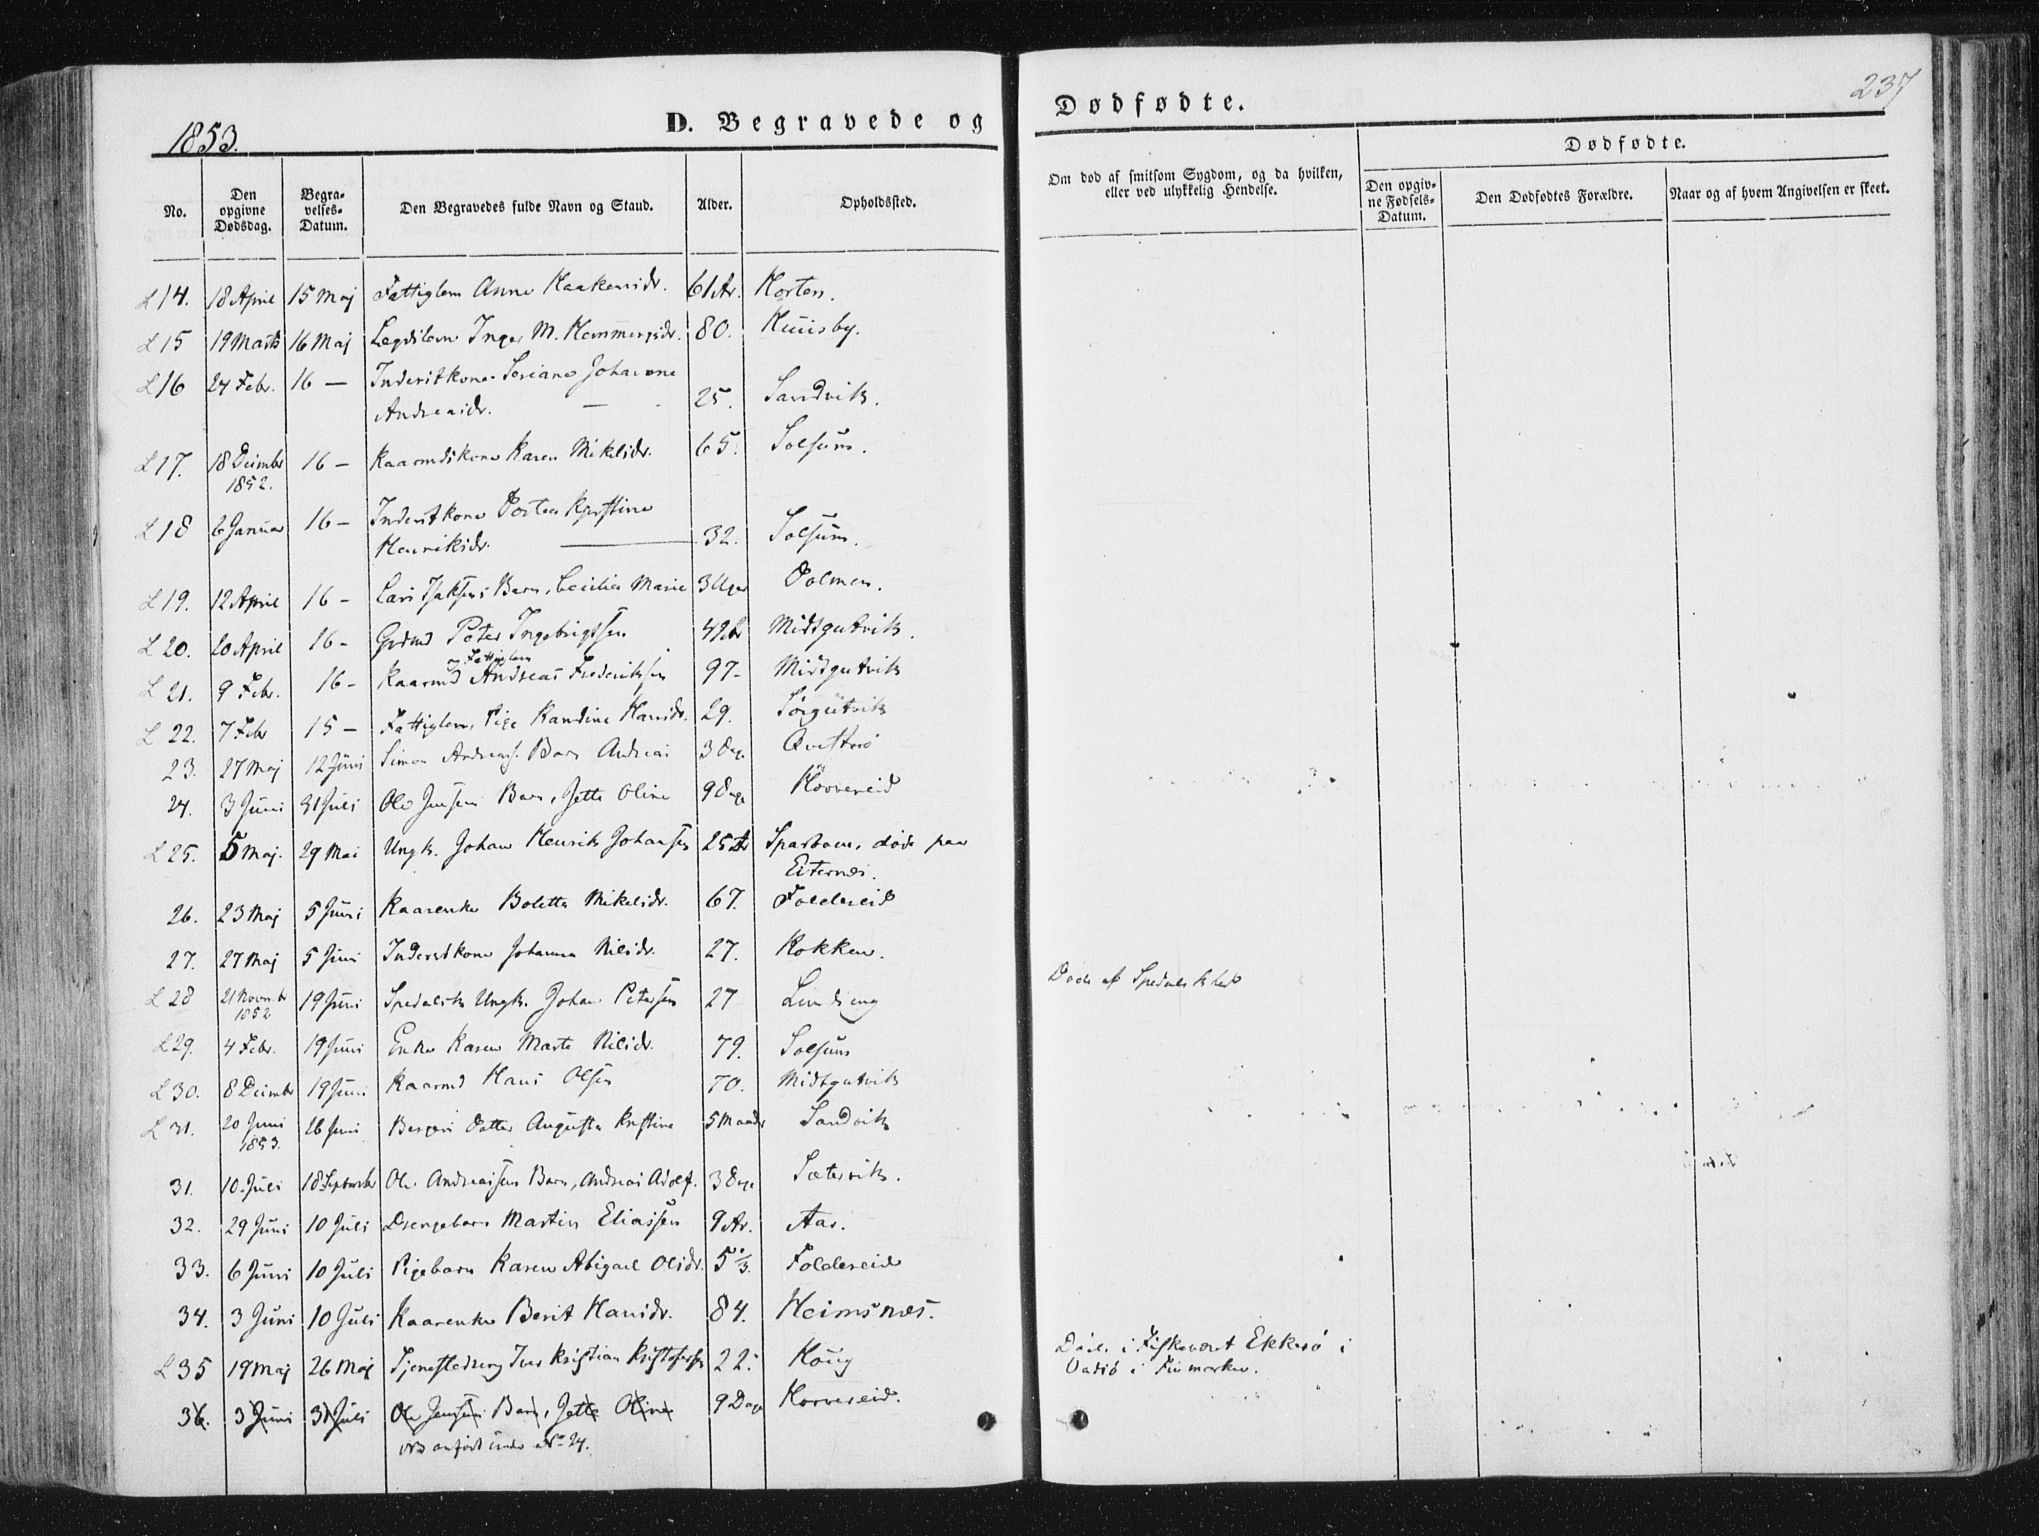 1853.
D. Begravede og
Dødfødte.
237
No.
Den opgivne Dødsdag.
Begravelses-Datum.
Den Begravedes fulde Navn og Stand.
Alder.
Opholdssted.
Om død af smitsom Sygdom, og da hvilken, eller ved ulykkelig Hendelse.
Dødfødte.
Den opgivne Fødsels-Datum.
Den Dødfødtes Forældre.
Naar og af hvem Angivelsen er skeet.
L 14. 18 April 15 Maj Fattiglem Anne Haakensdr. 61 Ar. Horten.
L 15 19 Marts 16 Maj Legdslem Inger M. Hemmingsdr. 80. Huusby.
L 16 24 Febr. 16 — Inderstkone Seriane Johanna
Andreasdr. — 25. Sandvik.
L 17. 18 Decembr 16 — Kaarmdskone Karen Mikelsdr. 65. Solsum.
1852.
L 18 6 Januar 16 — Inderstkone Kjerstine
Henriksdr. 32. Solsum.
L 19. 12 April 16 — Lars Isaksens Barn, Cecilia Marie 3 Uger Dolmen.
L 20. 20 April 16 — Grdmd Peter Ingebrigtsen 49 Ar Midtgutvik.
L 21. 9 Febr. 16 — Kaarmd og Fattiglem Andreas Frederiksen 97 — Midtgutvik
L 22. 7 Febr 15 — Fattiglem, Pige Randine Hansdr. 29. Sörgutvik
23. 27 Maj 12 Juni Simon Andreass. Barn Andreas 3 Dage
24. 3 Juni 31 Juli Ole Jensens Barn, Jette Oline 9 Dage Horvereid
L 25. 5 Maj. 29 Mai Ungk. Johan Henrik Johansen 25 Ar Sparboen, døde paa
Eiternes.
26. 23 Maj 5 Juni Kaarenke Boletta Mikelsdr. 67. Foldereid
27. 27 Maj 5 Juni Inderstkone Johanna Nilsdr. 27. Kokken.
L 28 21 Novembr 1852 19 Juni Spedalsk Ungk. Johan Petersen 27 Lundeng Døde af Spedalskhed
L 29. 4 Febr. 19 Juni Enke Karen Marta Nilsdr. 79. Solsum
L 30. 8 Decembr 19 Juni Kaarmd Hans Olsen 70. Midtgutvik
L 31. 20 Juni 1853. 26 Juni Datter Augusta Kristine 5 Maander Sandvik
31. 10. Juli 18 Septembr Ole Andreassens Barn, Andreas Adolf. 3 Dage Sætervik.
32. 29 Juni 10 Juli Drengebarn Martin Eliassen 9 Ar. Aar.
33. 6 Juni 10 Juli Pigebarn Karen Abigael Olsdr. 5 1/3. Foldereid
34. 3 Juni 10 Juli Kaarenke Berit Hansdr. 84. Heimsnæs.
L 35 19 Maj 26 Maj Tjenestedreng Kristian Kristofersen 22. Haug Døde i Fiskeværet Ekkerö i
Vadsö i Finmarken.
36. 3 Juni 31 Juli Ole Jensens Barn, Jette Oline 9 Dage Horvereid.
NB anført under No 24.